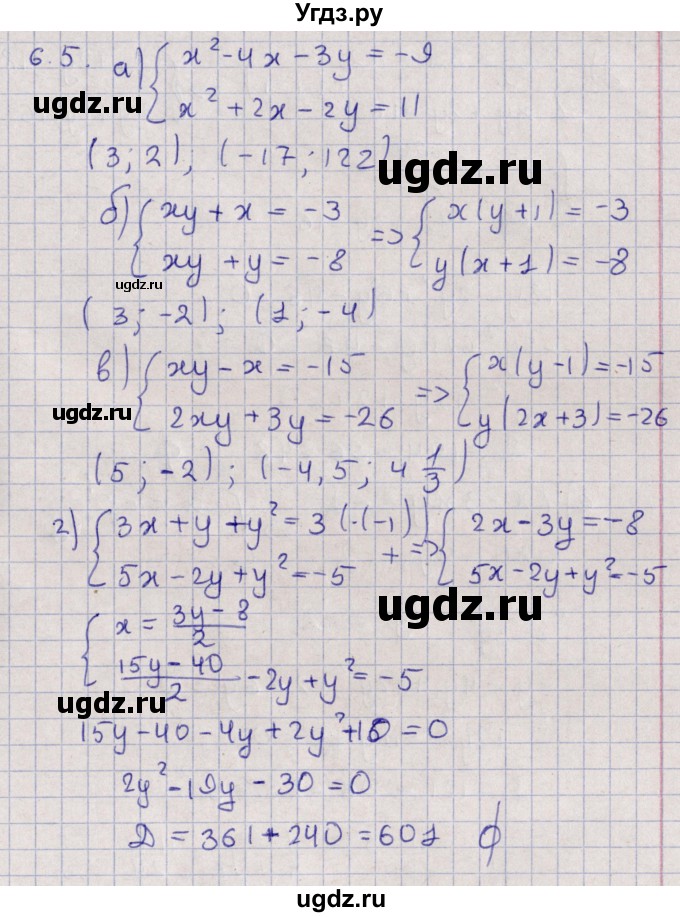 Угдз.ру
6.5. а) { x² - 4x - 3y = -9
x² + 2x - 2y = 11
ugdz.ru
ugdz.ru
(3; 2); (-17; 122)
ugdz.ru
б) { xy + x = -3
xy + y = -8
=> { x(y+1) = -3
y(x+1) = -8
ugdz.ru
(3; -2); (1; -4)
ugdz.ru
в) { xy - x = -15
2xy + 3y = -26
=> { x(y-1) = -15
y(2x+3) = -26
ugdz.ru
ugdz.ru
(5; -2); (-4,5; 4 1/3)
г) { 3x + y + y² = 3 (·(-1))
5x - 2y + y² = -5
+ => { 2x - 3y = -8
5x - 2y + y² = -5
ugdz.ru
ugdz.ru
{ x = (3y - 8)/2
(15y - 40)/2 - 2y + y² = -5
ugdz.ru
15y - 40 - 4y + 2y² + 10 = 0
2y² - 19y - 30 = 0
ugdz.ru
Д = 361 + 240 = 601 ∅
ugdz.ru
ugdz.ru